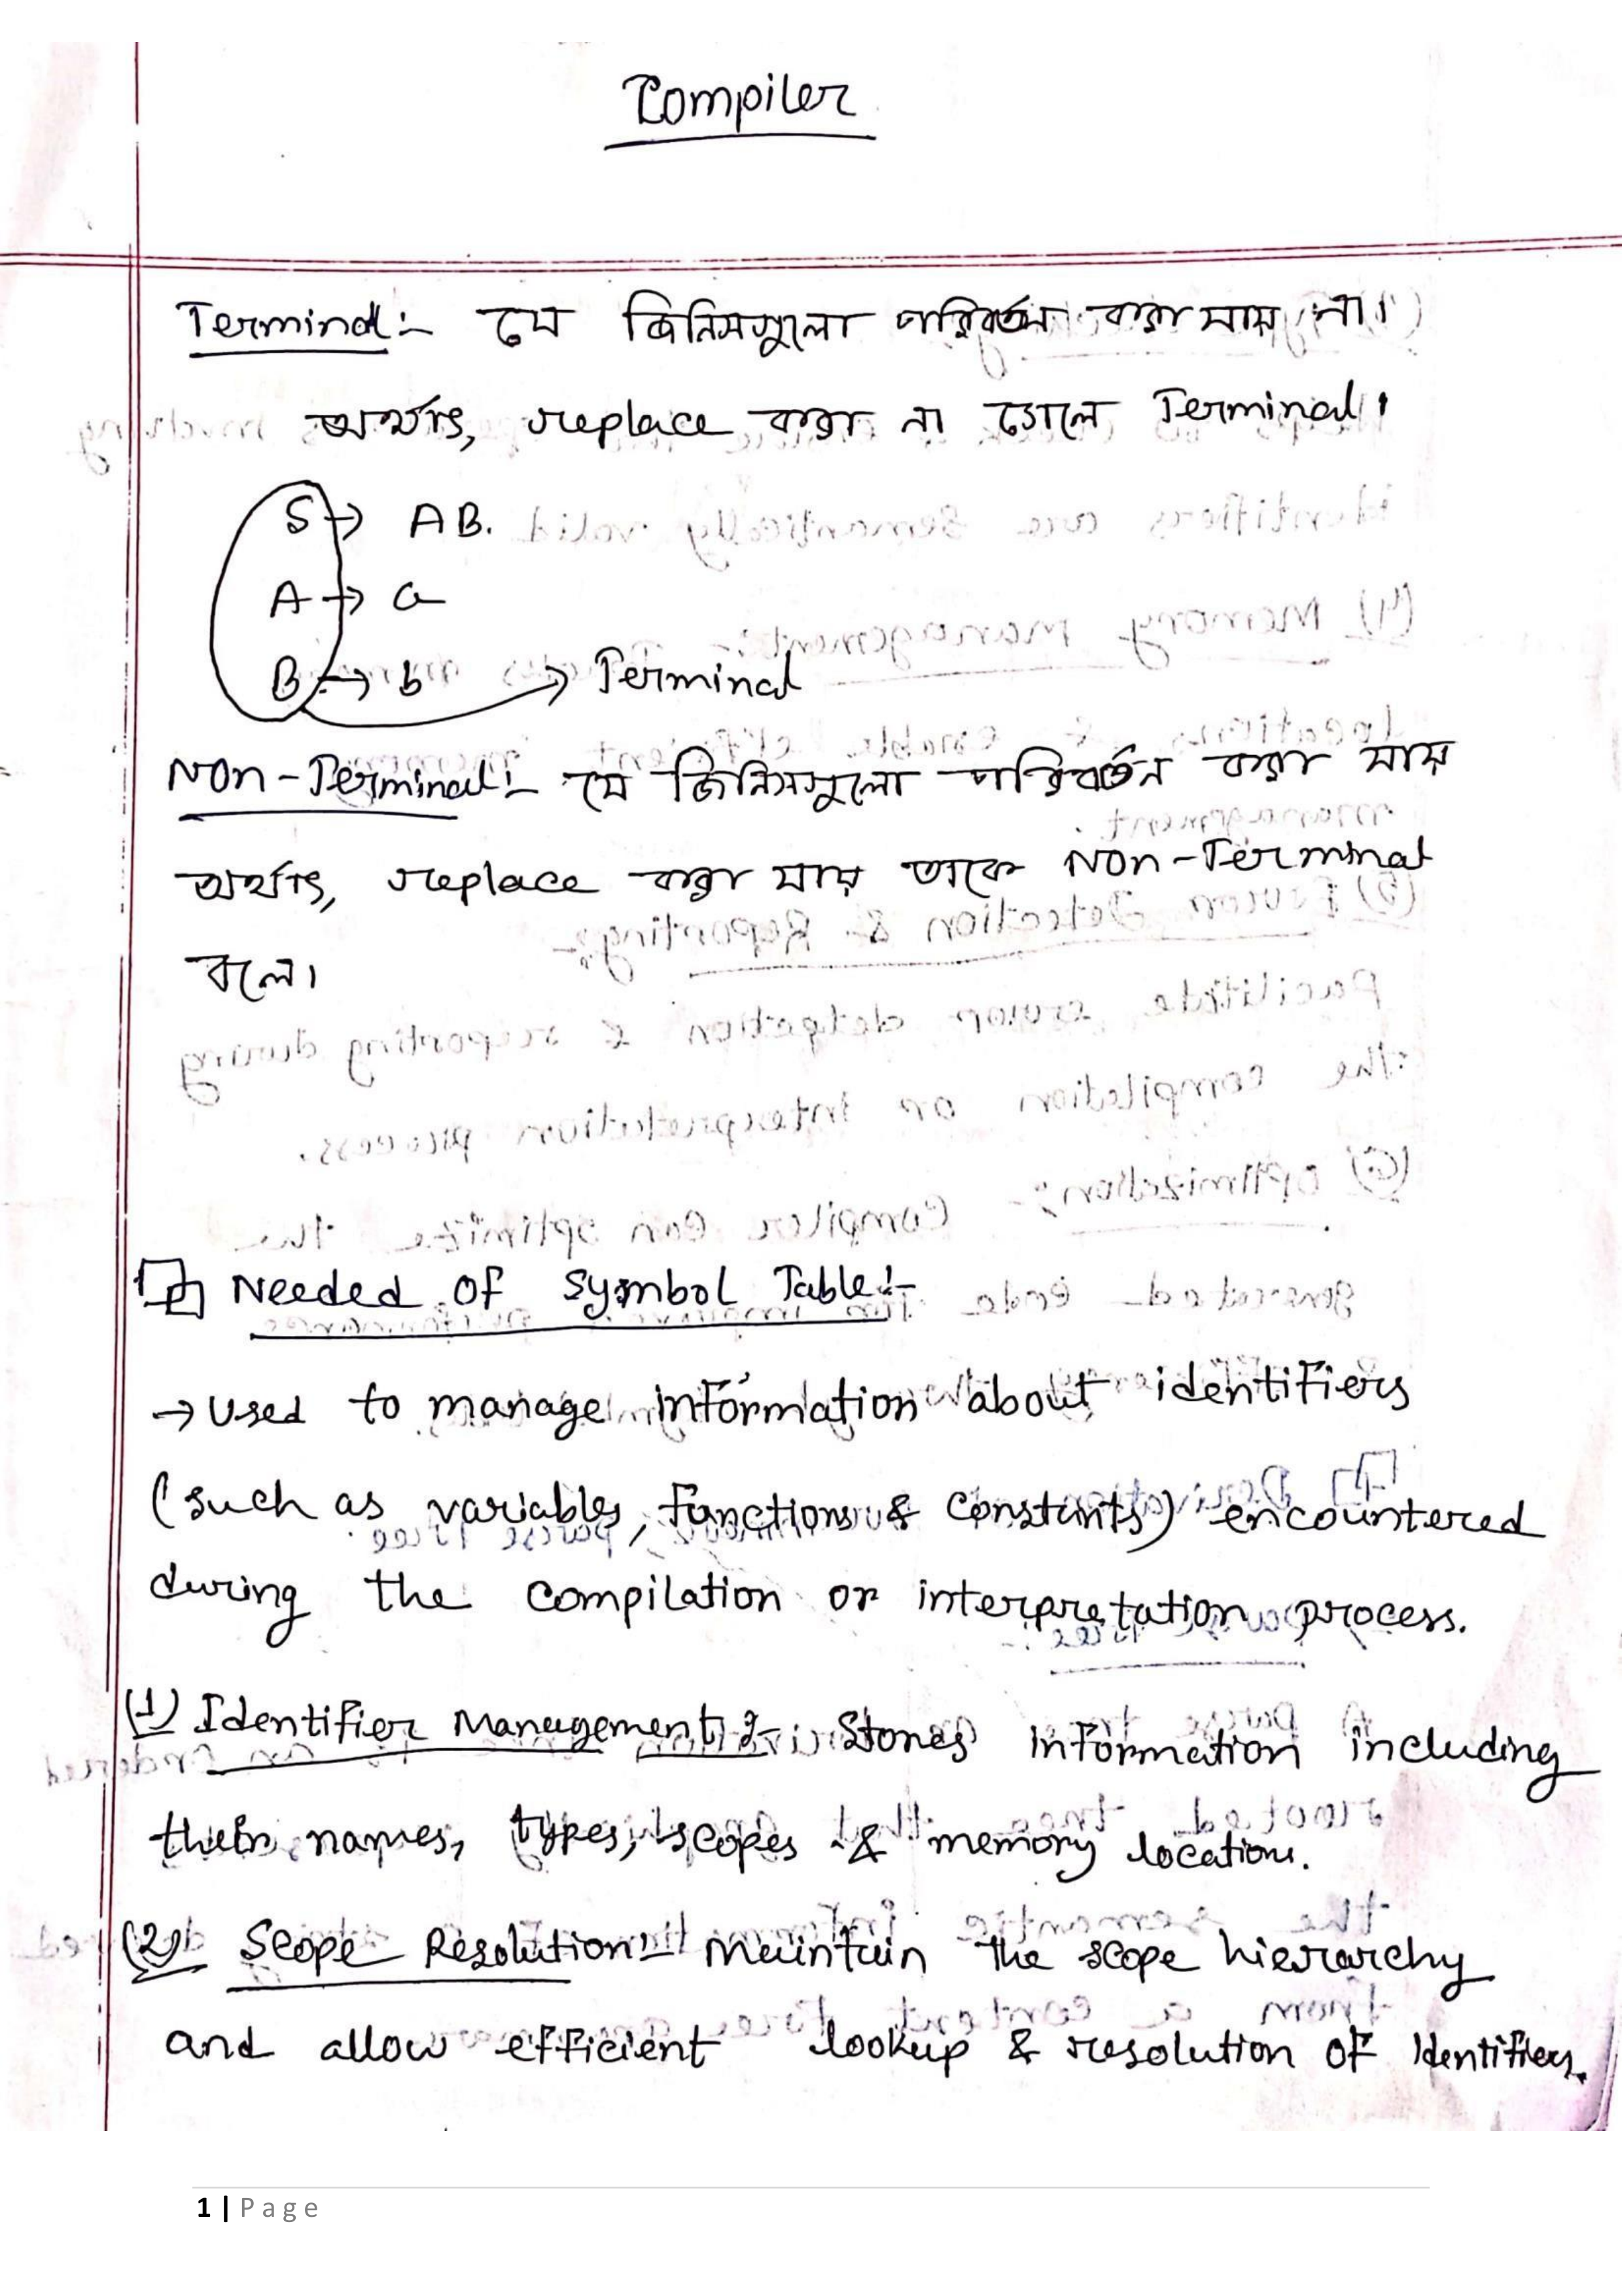 Compiler
Terminal:- যে জিনিসগুলো পরিবর্তন করা যায় না।
অর্থাৎ, replace করা না গেলে Terminal।
S → AB.
A → a
B → b → Terminal
Non-Terminal:- যে জিনিসগুলো পরিবর্তন করা যায়
অর্থাৎ, replace করা যায় তাকে Non-Terminal
বলে।
Needed of Symbol Table:-
→ Used to manage information about identifiers
(such as variables, functions & constants) encountered
during the compilation or interpretation process.
(1) Identifier Management:- Stores information including
their names, types, scopes & memory locations.
(2) Scope Resolution:- Maintain the scope hierarchy
and allow efficient lookup & resolution of Identifiers.
1 | Page